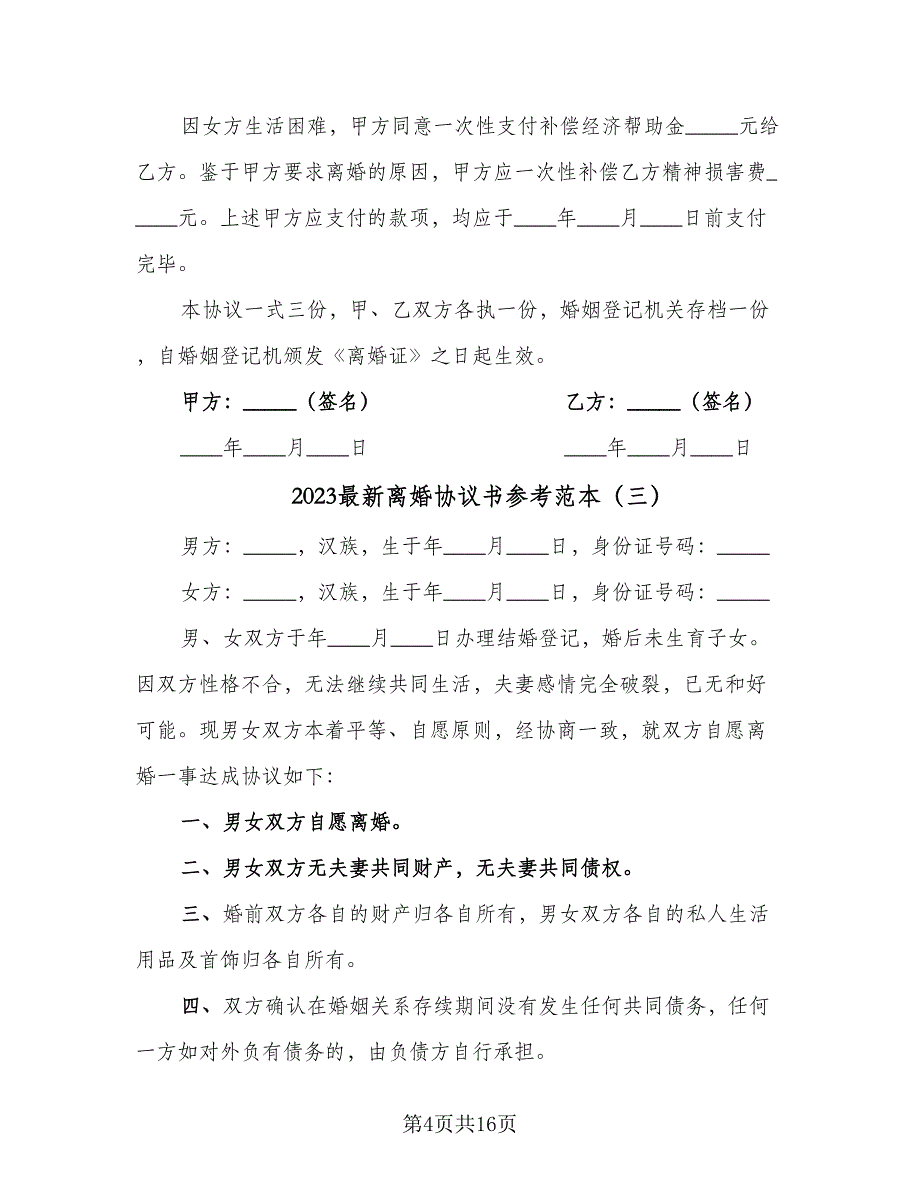 因女方生活困难，甲方同意一次性支付补偿经济帮助金_____元给
乙方。鉴于甲方要求离婚的原因，甲方应一次性补偿乙方精神损害费_
____元。上述甲方应支付的款项，均应于____年____月____日前支付
完毕。
本协议一式三份，甲、乙双方各执一份，婚姻登记机关存档一份
，自婚姻登记机颁发《离婚证》之日起生效。
甲方：_____（签名） 乙方：_____（签名）
____年____月____日 ____年____月____日
2023最新离婚协议书参考范本（三）
男方：_____，汉族，生于年____月____日，身份证号码：_____
女方：_____，汉族，生于年____月____日，身份证号码：_____
男、女双方于年____月____日办理结婚登记，婚后未生育子女。
因双方性格不合，无法继续共同生活，夫妻感情完全破裂，已无和好
可能。现男女双方本着平等、自愿原则，经协商一致，就双方自愿离
婚一事达成协议如下：
一、男女双方自愿离婚。
二、男女双方无夫妻共同财产，无夫妻共同债权。
三、婚前双方各自的财产归各自所有，男女双方各自的私人生活
用品及首饰归各自所有。
四、双方确认在婚姻关系存续期间没有发生任何共同债务，任何
一方如对外负有债务的，由负债方自行承担。
第4页共16页